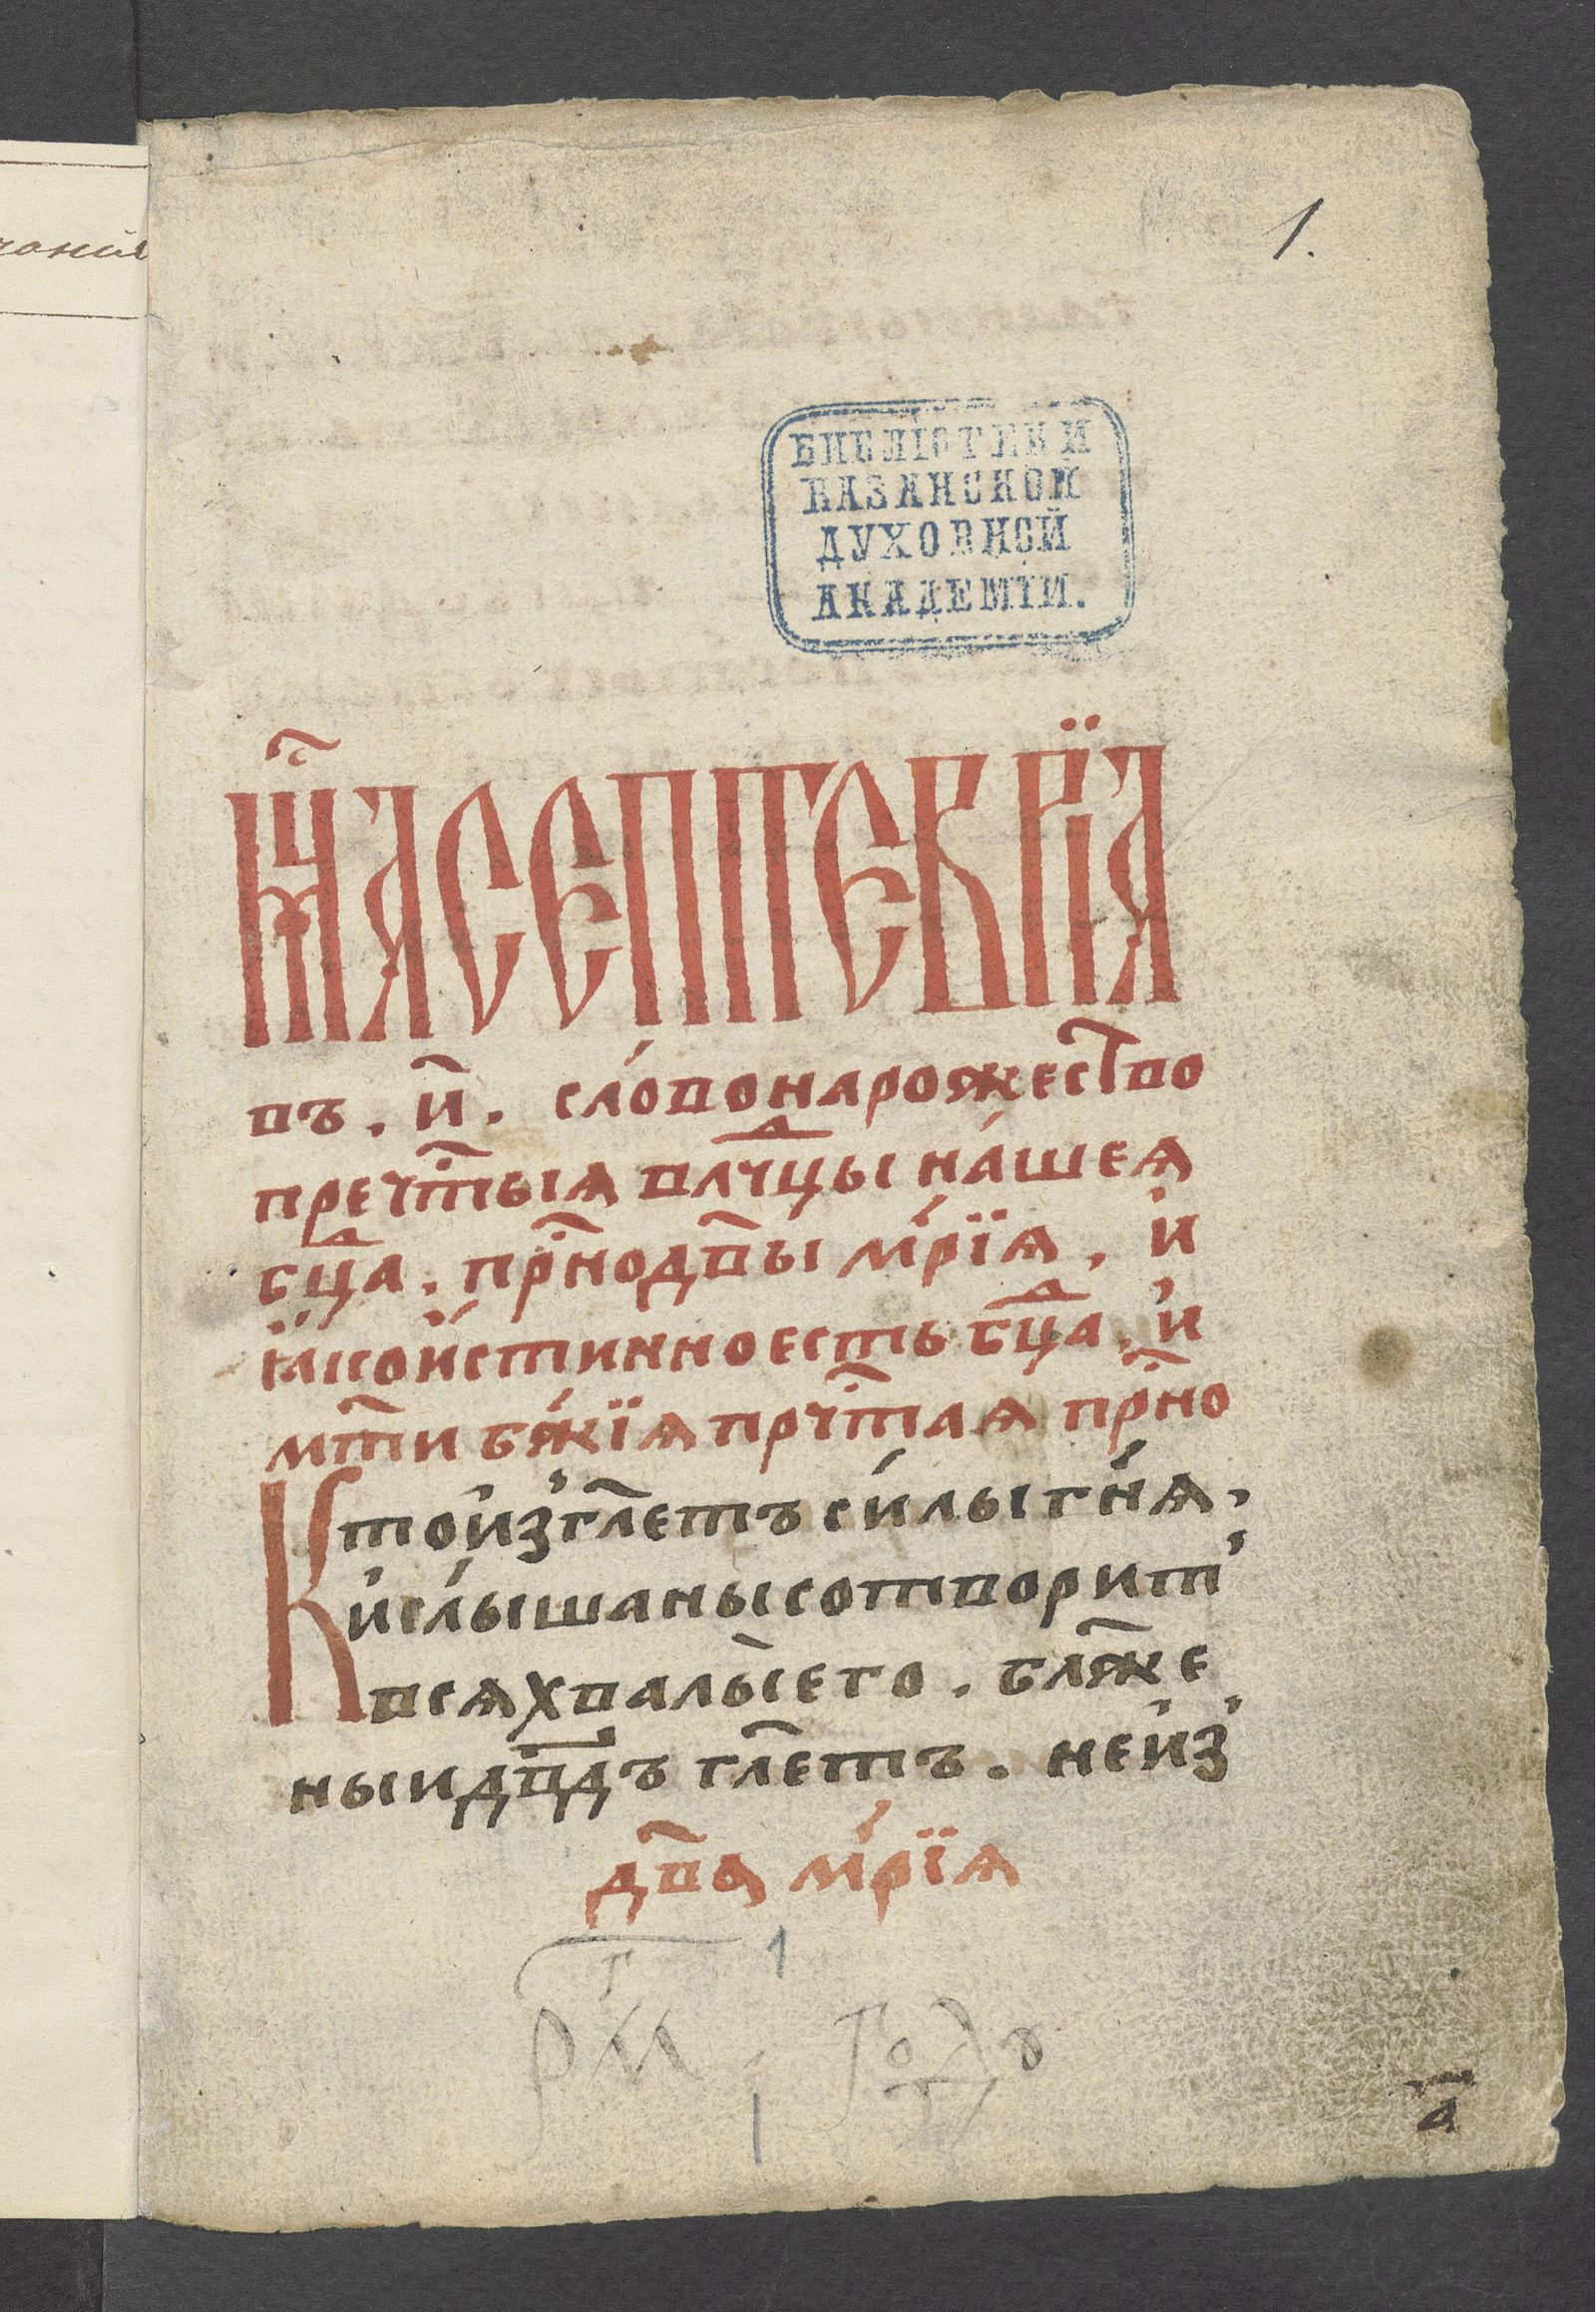 чанія
1.
БИБЛІОТЕКИ
КАЗАНСКОЙ
ДУХОВНОЙ
АКАДЕМІИ.
мⷭ҇цѧ септеврїѧ
въ . и҃ . сло́во на рожество
пречⷭ҇тыѧ влⷣчцы на́шеѧ
бцⷣа . прⷭ҇нодв҃ы мр҃і́ѧ , и҆
ꙗ҆́ко и҆́стинно есть бцⷣа , и҆
мт҃и бж҃їѧ прчⷭ҇таѧ прⷭ҇но
Кто и҆згл҃етъ си́лы гнѧ҃ ,
и҆ слы́шаны сотворит̾
всѧ хвалы̀ его . бл҃же
ныи дв҃дъ гл҃етъ . не и҆з̾
дв҃а мр҃і́ѧ
1
рм г году
а҃